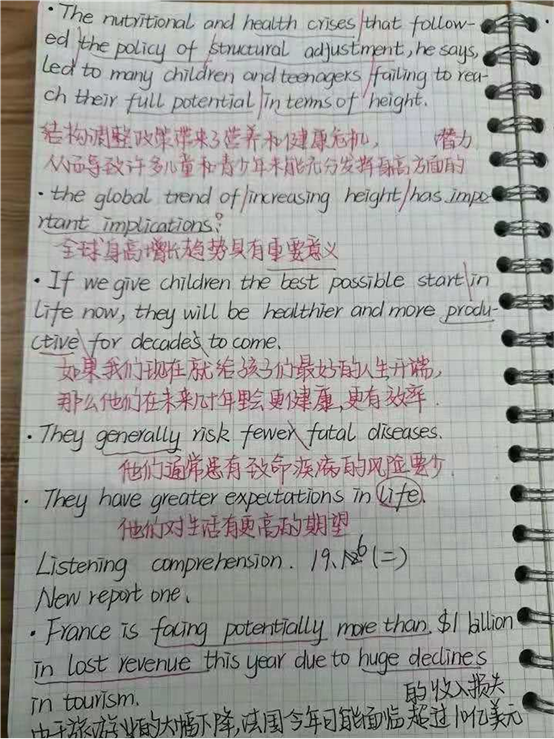 · The nutritional and health crises that follow-
ed the policy of structural adjustment, he says,
led to many children and teenagers failing to rea-
ch their full potential in terms of height.
结构调整政策带来了营养和健康危机, 潜力
从而导致许多儿童和青少年未能充分发挥身高方面的
· the global trend of increasing height has impo-
rtant implications:
全球身高增长趋势具有重要意义
· If we give children the best possible start in
life now, they will be healthier and more produ-
ctive for decades to come.
如果我们现在就给孩子们最好的人生开端,
那么他们在未来几十年里会更健康,更有效率.
· They generally risk fewer fatal diseases.
他们通常患有致命疾病的风险更少.
· They have greater expectations in life.
他们对生活有更高的期望
Listening comprehension. 19. 6 (二)
New report one.
· France is facing potentially more than $1 billion
in lost revenue this year due to huge declines
in tourism. 的收入损失
由于旅游业的大幅下降,法国今年可能面临超过10亿美元